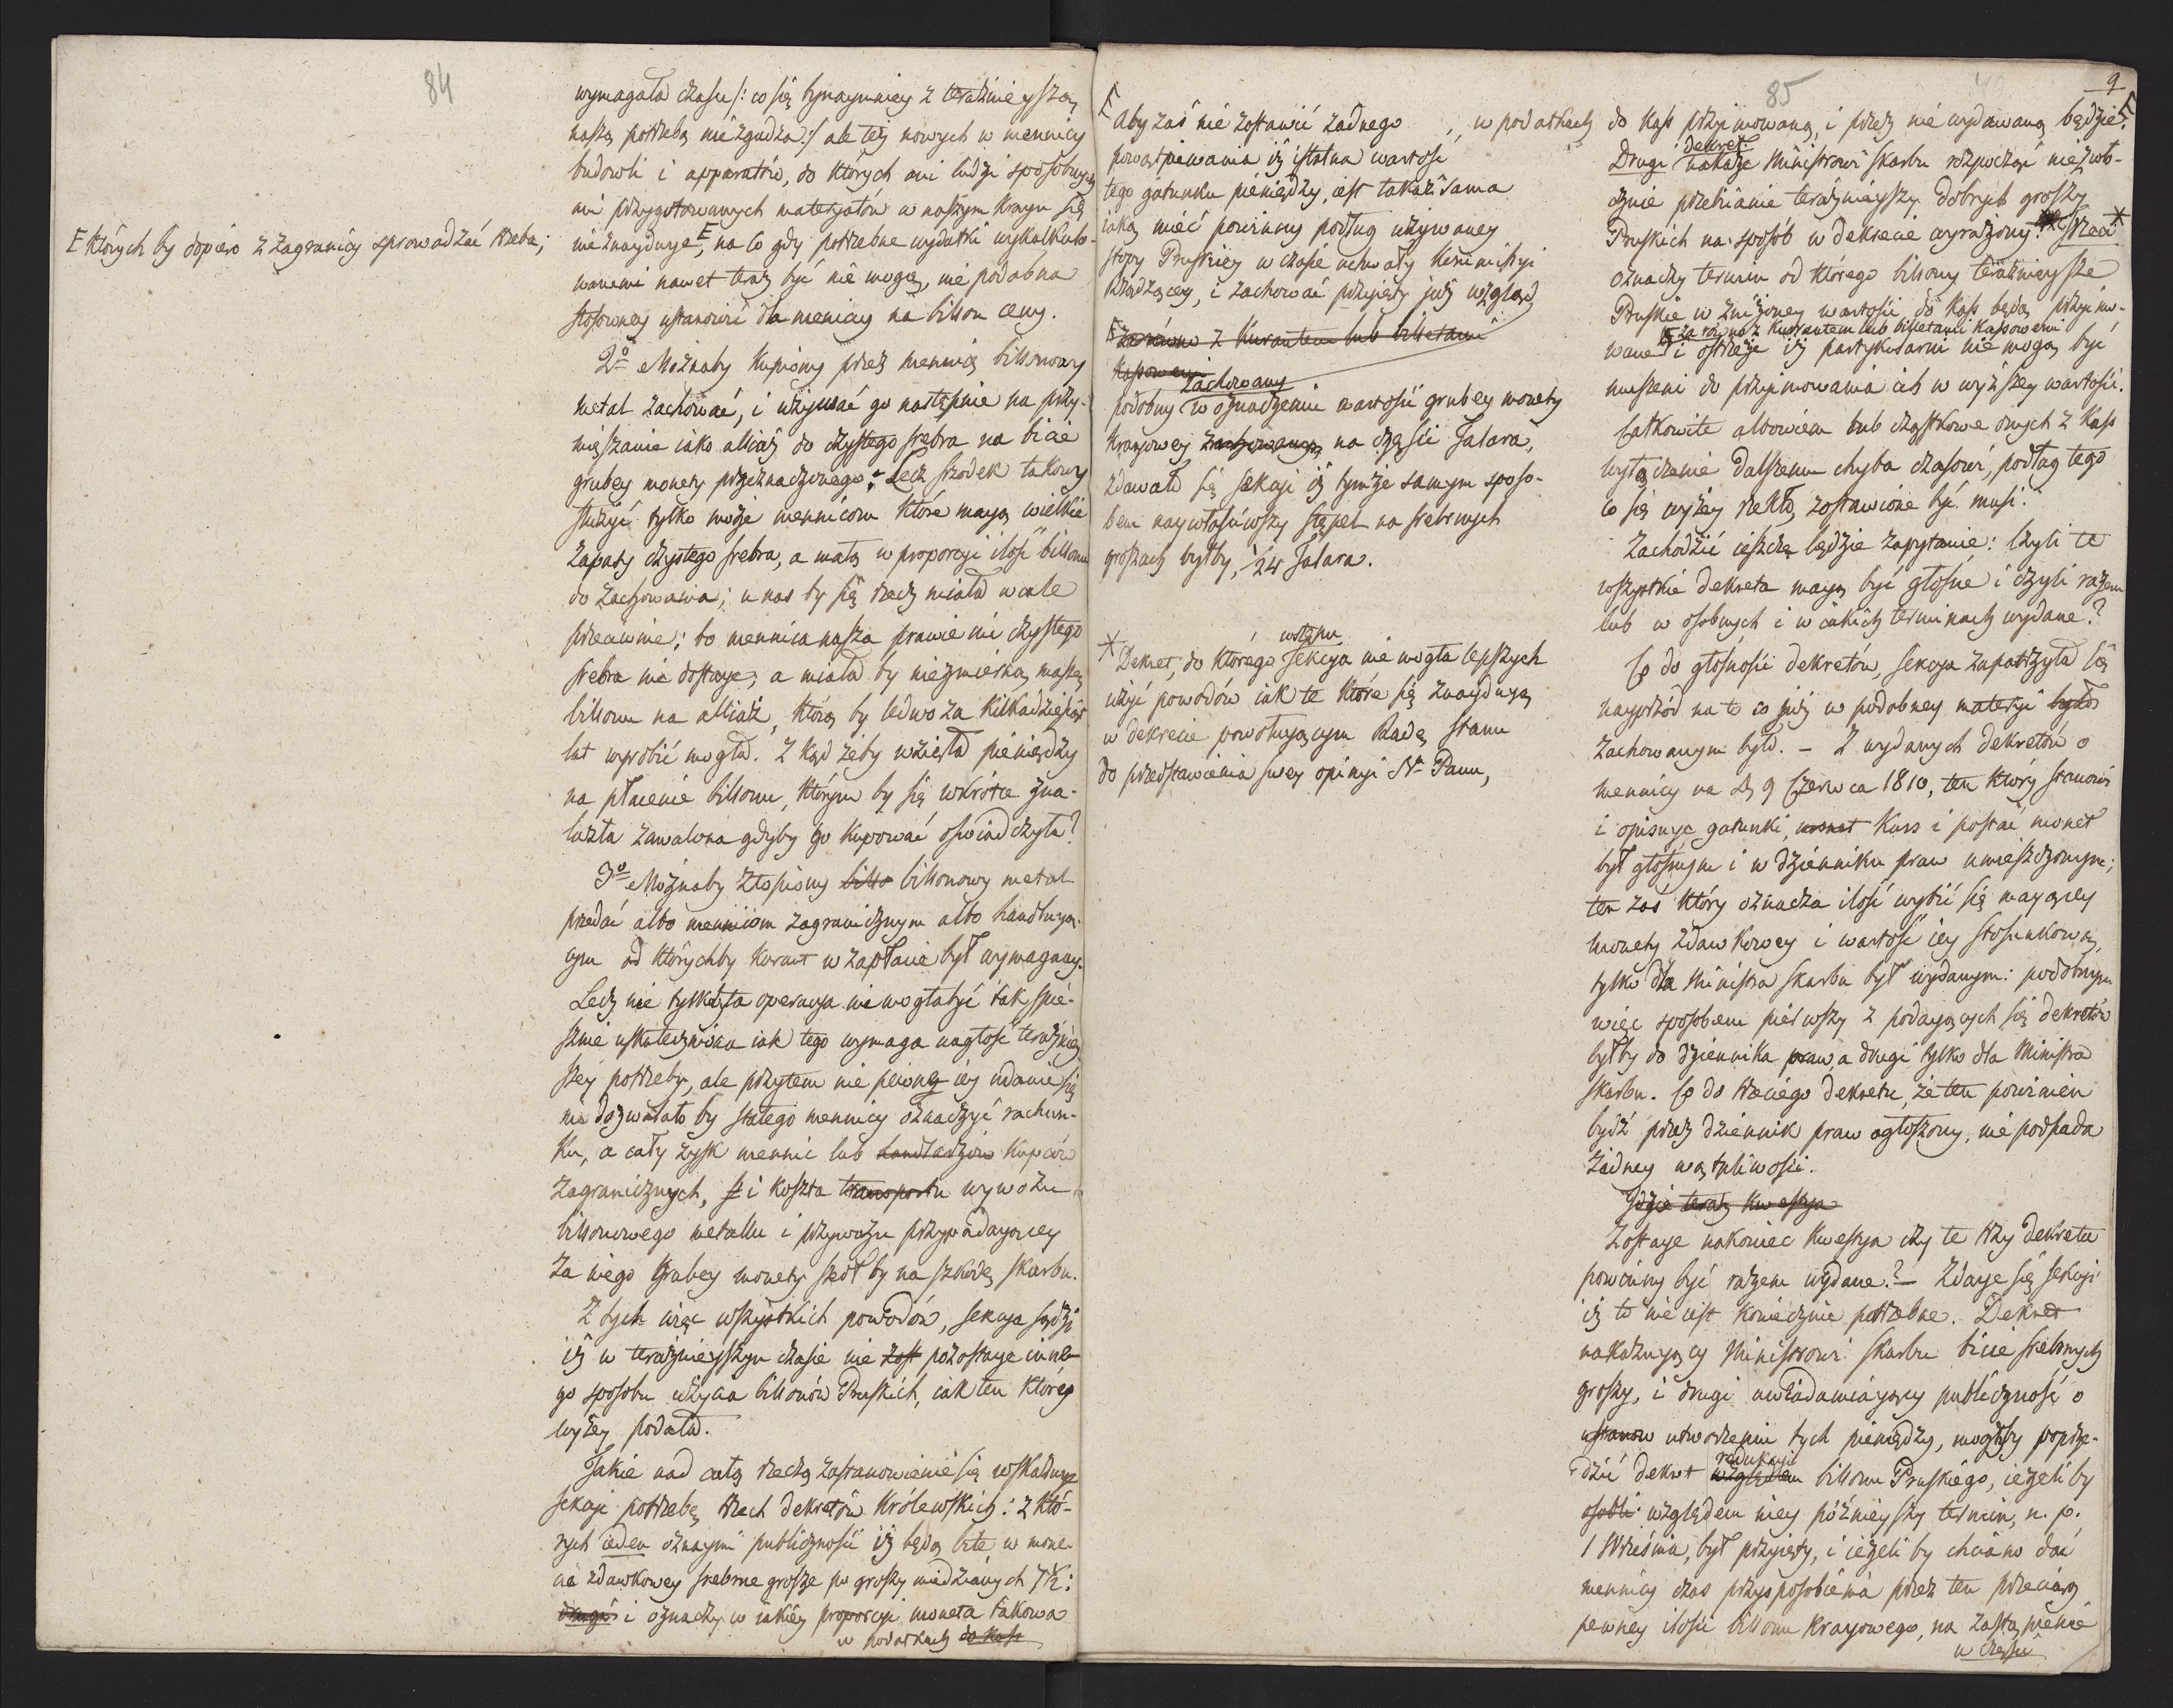 84
wymagała czasu /: co się bynaymniey z teraźnieyszą
naszą potrzebą nie zgadza :/ ale też nowych w mennicy
budowli i apparatów, do których ani ludzi sposobnych
ani przygotowanych materyałów w naszym kraju się
nie znayduye, E na co gdy potrzebne wydatki wykalkulo-
E których by dopiéro z zagranicy sprowadzać trzeba;
wanemi nawet teraz być nie mogą, nie podobna
stosowney ustanowić dla mennicy na billon ceny.
2o Możnaby kupiony przez mennicę billonowy
metal zachować, i używać go następnie na przy-
mięszanie iako alliaż do czystego srebra na bicie
grubey monety przeznaczonego. Lecz środek takowy
służyć tylko może mennicom które mayą wielkie
zapasy czystego srebra, a małą w proporcyi ilość billonu
do zachowania; u nas by się rzecz miała wcale
przeciwnie; bo mennica nasza prawie nic czystego
srebra nie dostaye; a miała by niezmierną massę
billonu na alliaż, którą by ledwo za kilkadziesiąt
lat wyrobić mogła. Z kąd żeby wzięła pieniędzy
na płacenie billonu, którym by się wkrótce zna-
lazła zawalona gdyby go kupować oświadczyła?
3o Możnaby ztopiony billo billonowy metal
przedać albo mennicom zagranicznym albo handluyą-
cym od którychby kurant w zapłacie był wymagany.
Lecz nie tylko ta operacya nie mogła być tak spie-
sznie uskuteczniona iak tego wymaga nagłość teraźniey-
szey potrzeby, ale przytem nie pewne iey udanie się
nie dozwalało by stałego mennicy oznaczyć rachun-
ku, a cały zysk mennic lub handlarzów kupców
zagranicznych, i koszta transportu wywozu
billonowego metallu i przywozu przypadayącey
za niego grubey monety szedł by na szkodę skarbu.
Z tych więc wszystkich powodów, sekcya sądzi
iż w teraźnieyszym czasie nie zost pozostaye inne-
go sposobu użycia billonów Pruskich, iak ten który
wyżey podała.
Takie nad całą rzeczą zastanowienie się wskazuye
sekcyi potrzebę trzech dekretów królewskich: z któ-
rych ieden oznaymi publiczności iż będą bite w mone-
cie zdawkowey srebrne grosze po groszy miedzianych 7½:
drugi i oznaczy w iakiey proporcyi moneta takowa
w podatkach do kass
85
9
E Aby zaś nie zostawić żadnego
powątpiewania iż istotna wartość
tego gatunku pieniędzy, iest takaż sama
iaką mieć powinny podług używaney
stopy Pruskiey w czasie uchwały kommissyi
Rządzącey, i zachować przyięty już wzgląd
E zarówno z kurantem lub billetami
kassowemi
zachowany
podobny w oznaczeniu wartości grubey monety
kraiowey zachowany na części Talara,
zdawało się sekcyi iż tymże samym sposo-
bem naywłaściwszy stępel na srebrnych
groszach byłby, 1/24 Talara.
wstępu
* Dekret, do którego sekcya nie mogła lepszych
użyć powodów iak te które się znayduyą
w dekrecie powołuyącym Radę stanu
do przedstawienia swey opinyi N. Panu,
w podatkach do kass przyimowaną, i przez nie wydawaną będzie. E
dekret
Drugi nakaże Ministrowi skarbu rozpocząć niezwło-
cznie przebicie teraźnieyszy dobrych groszy
Pruskich na sposób w dekrecie wyrażony. Trzeci *
oznaczy termin od którego billony teraźnieysze
Pruskie w zniżoney wartości do kass będą przyimo-
E zarówno z kurantem lub billetami kassowemi
wane i ostrzeże iż partykularni nie mogą być
muszeni do przyimowania ich w wyższey wartości.
Całkowite albowiem lub cząstkowe onych z kass
wyłączenie dalszemu chyba czasowi, podług tego
co się wyżey rzekło, zostawione być musi.
Zachodzić ieszcze będzie zapytanie: czyli te
wszystkie dekreta mayą być głośne i czyli razem
lub w osobnych i w iakich terminach wydane?
Co do głośności dekretów, sekcya zapatrzyła się
nayprzód na to co już w podobney materyi było
zachowanym było. – Z wydanych dekretów o
mennicy na d. 9 Czerwca 1810, ten który stanowi
i opisuye gatunki, monet kurs i postać monet
był głośnym i w dzienniku praw umieszczonym;
ten zaś który oznacza ilość wybić się mayącey
monety zdawkowey i wartość iey stosunkową,
tylko dla Ministra skarbu był wydanym: podobnym
więc sposobem pierwszy z podayących się dekretów
byłby do dziennika praw, a drugi tylko dla Ministra
skarbu. Co do trzeciego dekretu, że ten powinien
bydź przez dziennik praw ogłoszony, nie podpada
żadney wątpliwości.
Idzie teraz kwestya
Zostaye nakoniec kwestya czy te trzy dekreta
powinny być razem wydane? – Zdaye się sekcyi
iż to nie iest koniecznie potrzebne. Dekret
nakazuyący Ministrowi skarbu bicie srebrnych
groszy, i drugi uwiadamiayący publiczność o
ustanow utworzeniu tych pieniędzy, mogłyby poprze-
redukcyi
dzić dekret względem billonu Pruskiego, ieżeli by
osobli względem niey późnieyszy termin, n. p.
1 Września, był przyięty, i ieżeli by chciano dać
mennicy czas przysposobienia przez ten przeciąg
pewney ilości billonu krayowego, na zastąpienie
w części